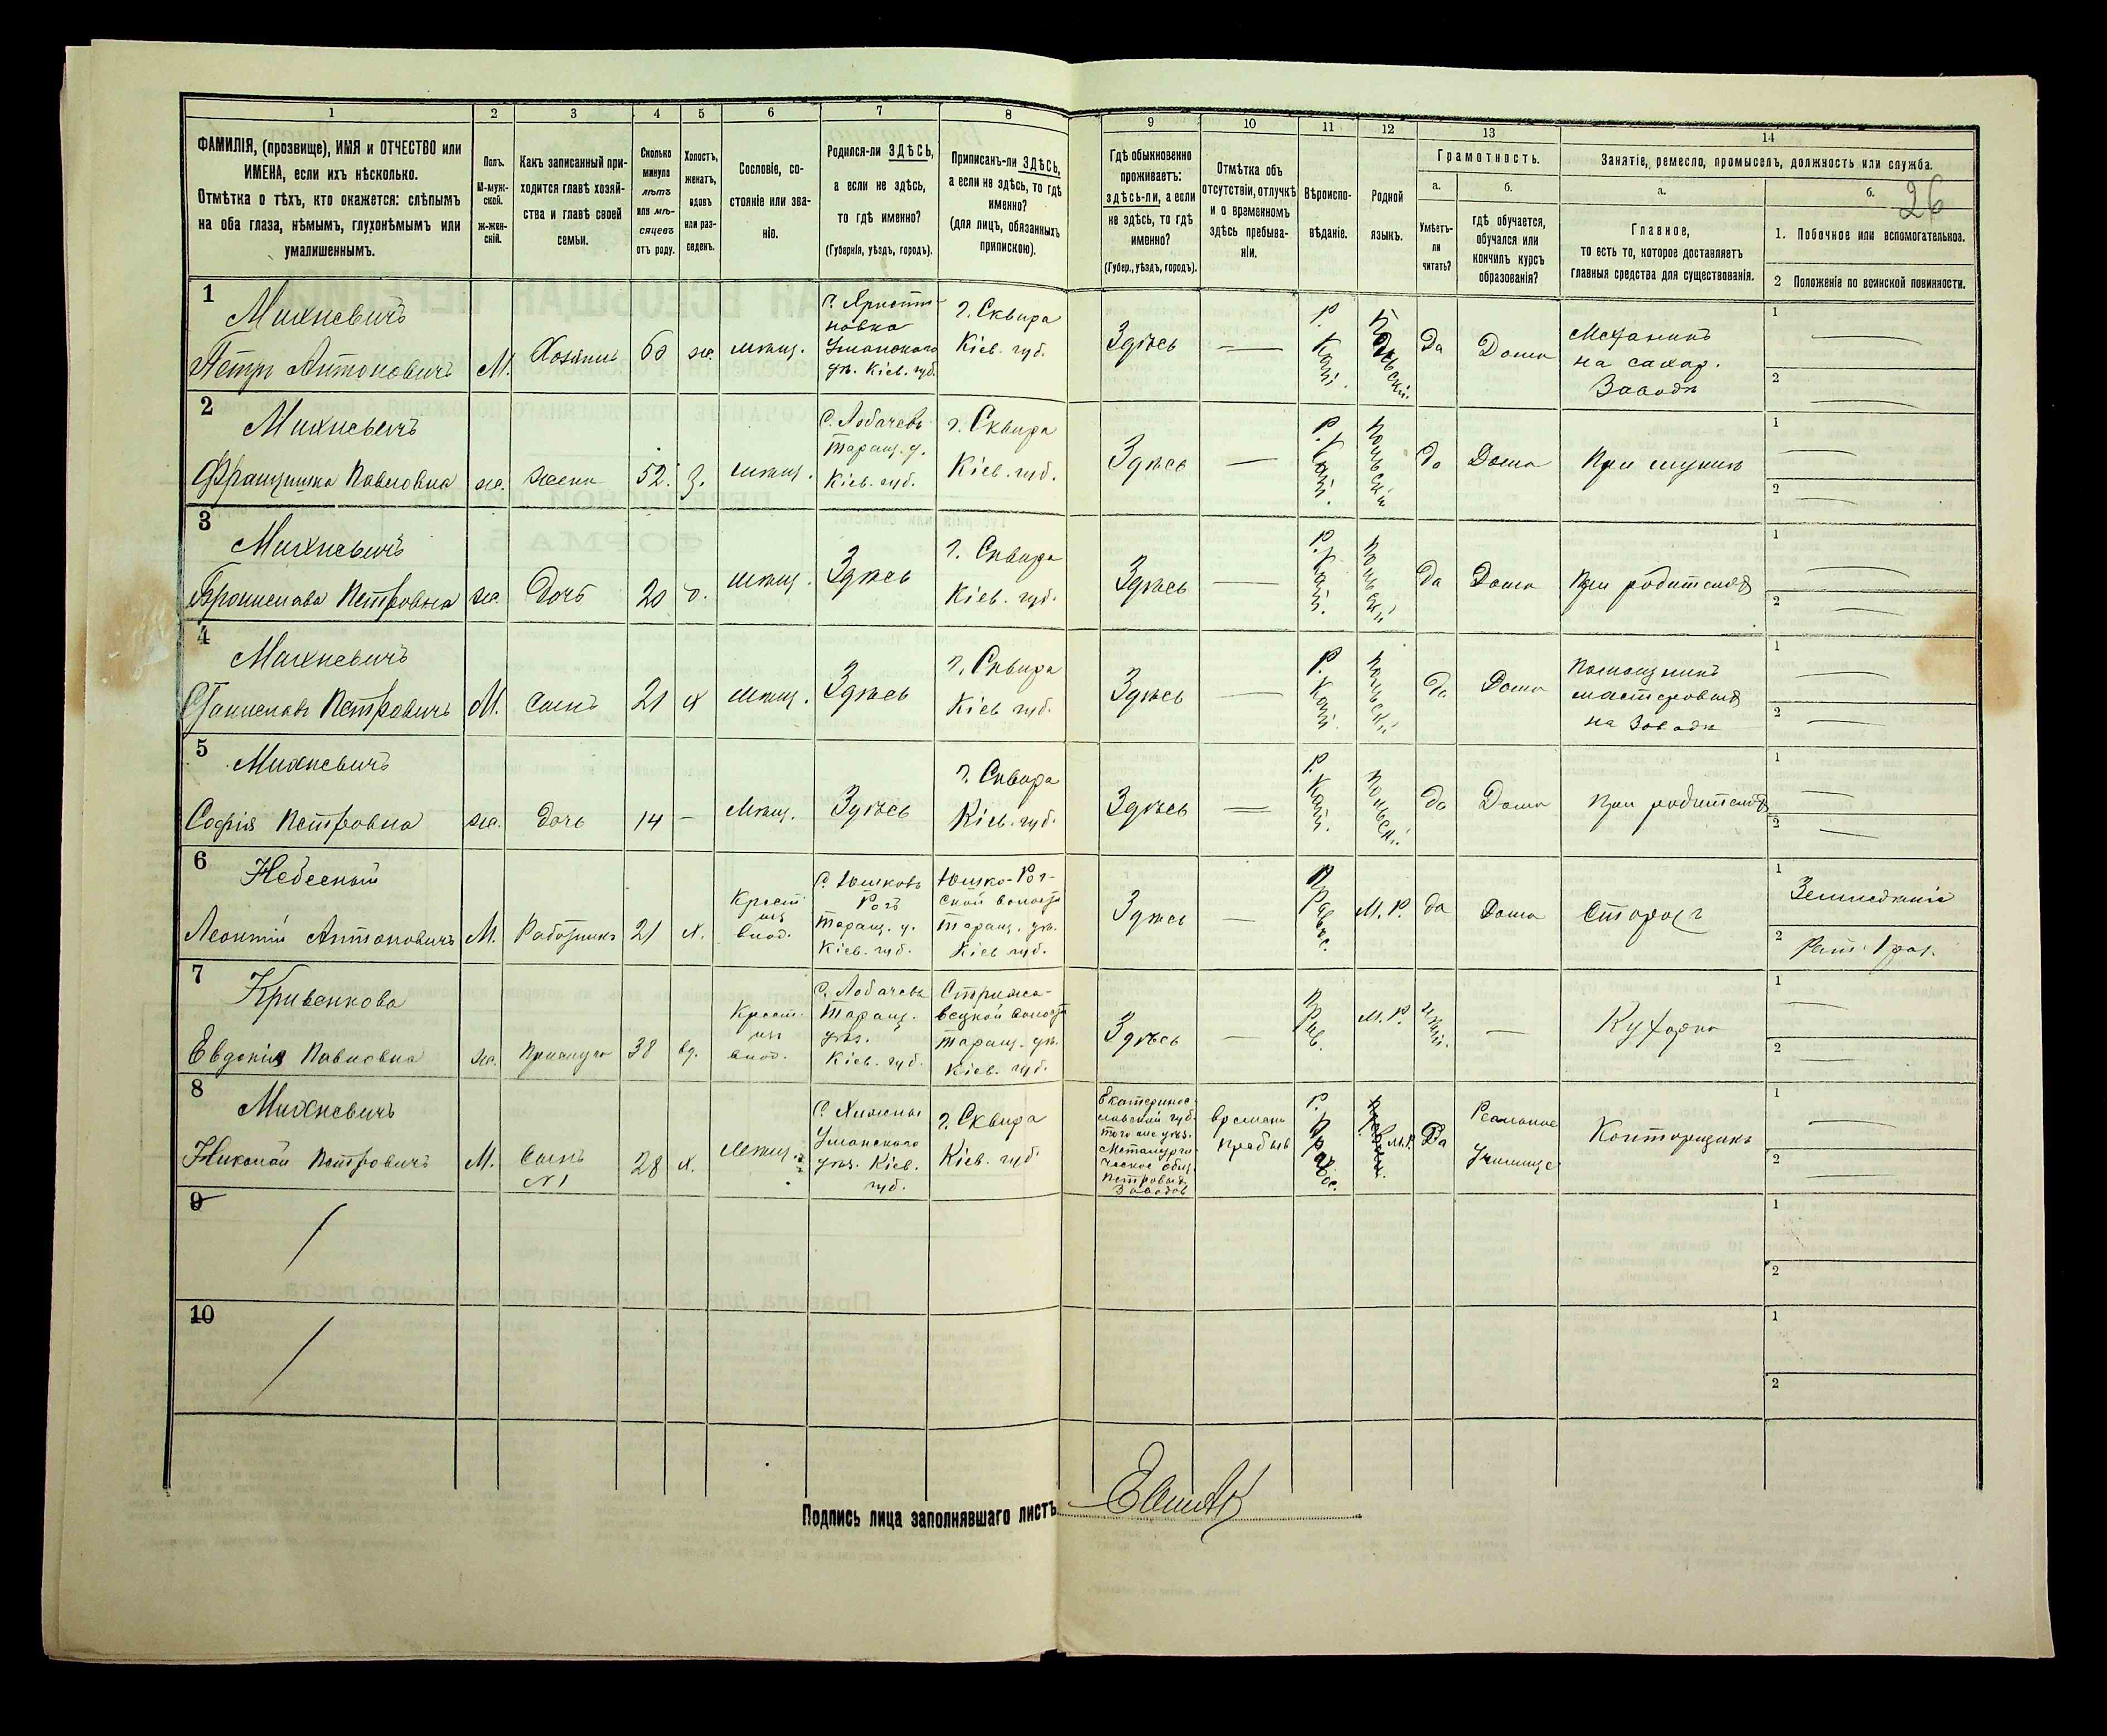 1 2 3 4 5 6 7 8 9 10 11 12 13 14
ФАМИЛІЯ, (прозвище), ИМЯ и ОТЧЕСТВО или
ИМЕНА, если ихъ нѣсколько.
Отмѣтка о тѣхъ, кто окажется: слѣпымъ
на оба глаза, нѣмымъ, глухонѣмымъ или
умалишеннымъ.
Полъ.
М-муж-
ской.
Ж-жен-
скій.
Какъ записанный при-
ходится главѣ хозяй-
ства и главѣ своей
семьи.
Сколько
минуло
лѣтъ
или мѣ-
сяцевъ
отъ роду.
Холостъ,
женатъ,
вдовъ
или раз-
веденъ.
Сословіе, со-
стояніе или зва-
ніе.
Родился-ли ЗДѢСЬ,
а если не здѣсь,
то гдѣ именно?
(Губернія, уѣздъ, городъ).
Приписанъ-ли ЗДѢСЬ,
а если не здѣсь, то гдѣ
именно?
(для лицъ, обязанныхъ
припискою).
Гдѣ обыкновенно
проживаетъ:
здѣсь-ли, а если
не здѣсь, то гдѣ
именно?
(Губер., уѣздъ, городъ).
Отмѣтка объ
отсутствіи, отлучкѣ
и о временномъ
здѣсь пребыва-
ніи.
Вѣроиспо-
вѣданіе.
Родной
языкъ.
Грамотность.
а.
Умѣетъ-
ли
читать?
б.
гдѣ обучается,
обучался или
кончилъ курсъ
образованія?
Занятіе, ремесло, промыселъ, должность или служба.
а.
Главное,
то есть то, которое доставляетъ
главныя средства для существованія.
б.
26
1. Побочное или вспомогательное.
2 Положеніе по воинской повинности.
1
Михневичъ
Петръ Антоновичъ
М.
Хозяинъ
60
ж.
мѣщ.
Уманскаго
уѣ. Кіев. губ.
г. Сквира
Кіев. губ.
Здѣсь
—
Р.
Кат.
Польскій.
Да
Дома
Механикъ
на сахар.
Заводѣ
1 —
2 —
2
Михневичъ
Францишка Павловна
ж.
жена
52.
З.
мѣщ.
С. Лобачевъ
Таращ. у.
Кіев. губ.
г. Сквира
Кіев. губ.
Здѣсь
—
Р.
Кат.
Польскій
да
Дома
При мужѣ
1 —
2 —
3
Михневичъ
Бронислава Петровна
ж.
Дочь
20
мѣщ.
Здѣсь
г. Сквира
Кіев. губ.
Здѣсь
—
Р.
Кат.
Польскій
да
Дома
При родителях
1 —
2 —
4
Михневичъ
Станиславъ Петровичъ
М.
Сынъ
21
х
мѣщ.
Здѣсь
г. Сквира
Кіев губ.
Здѣсь
—
Р.
Кат.
Польскі
да
Дома
Помощникъ
мастеровых
на Заводѣ
1 —
2 —
5
Михневичъ
Софія Петровна
ж.
дочь
14
—
Мѣщ.
Здѣсь
г. Сквира
Кіев. губ.
Здѣсь
—
Р.
Кат.
Польскі.
да
Дома
При родителях
1 —
2 —
6
Небесный
Леонтій Антоновичъ
М.
Работникъ
21
х.
Крест
изъ
влад.
С. Юшковъ
Рогъ
Таращ. у.
Кіев. губ.
Юшко-Рог-
ской волости
Таращ. уѣ.
Кіев губ.
Здѣсь
—
Правос.
М. Р.
да
Дома
Сторож
1 Земледѣліе
2 Рат. 1 раз.
7
Кривенкова
Евдокія Павловна
ж.
Прислуга
38
вд.
Крест.
изъ
влад.
С. Лобачевъ
Таращ.
уѣз.
Кіев. губ.
Стриже-
вецкой волости
Таращ. уѣ.
Кіев. губ.
Здѣсь
—
Прав.
М. Р.
нѣт.
—
Кухарка
1 —
2 —
8
Михневичъ
Николай Петровичъ
М.
Сынъ
№1
28
х.
Мѣщ.
С. Хижна
Уманскаго
уѣз. Кіев.
губ.
г. Сквира
Кіев. губ
Екатеринос-
лавской губ
того же уѣз.
Металурги-
ческое общ.
Петровых
Заводов
временн
пребыв
Правос.
М. Р.
Да
Реальное
Училище
Конторщикъ
1 —
2 —
9
1
2
10
1
2
Подпись лица заполнявшаго листъ